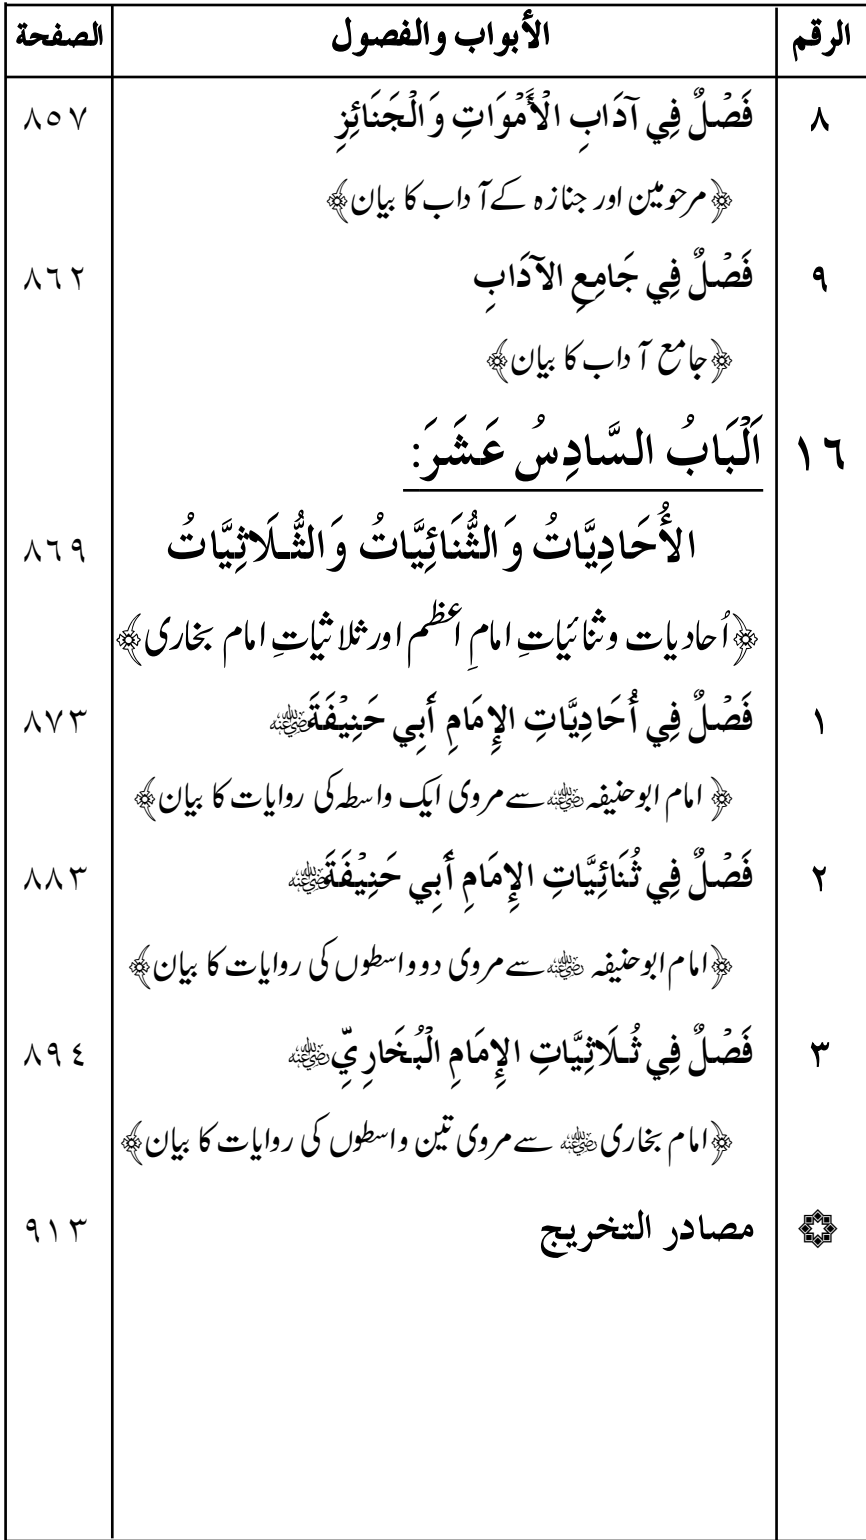 الرقم الأبواب والفصول الصفحة
٨ فَصْلٌ فِي آدَابِ الْأَمْوَاتِ وَالْجَنَائِزِ ٨٥٧
﴿مرحومین اور جنازہ کے آداب کا بیان﴾
٩ فَصْلٌ فِي جَامِعِ الآدَابِ ٨٦٢
﴿جامع آداب کا بیان﴾
١٦ اَلْبَابُ السَّادِسُ عَشَرَ:
الأُحَادِيَّاتُ وَالثُّنَائِيَّاتُ وَالثُّلَاثِيَّاتُ ٨٦٩
﴿اُحادیات وثنائیاتِ امامِ اعظم اور ثلاثیاتِ امام بخاری﴾
١ فَصْلٌ فِي أُحَادِيَّاتِ الإِمَامِ أَبِي حَنِيْفَةَ رضي الله عنه ٨٧٣
﴿امام ابوحنیفہ رضي الله عنه سے مروی ایک واسطہ کی روایات کا بیان﴾
٢ فَصْلٌ فِي ثُنَائِيَّاتِ الإِمَامِ أَبِي حَنِيْفَةَ رضي الله عنه ٨٨٣
﴿امام ابوحنیفہ رضي الله عنه سے مروی دو واسطوں کی روایات کا بیان﴾
٣ فَصْلٌ فِي ثُلَاثِيَّاتِ الإِمَامِ الْبُخَارِيِّ رضي الله عنه ٨٩٤
﴿امام بخاری رضي الله عنه سے مروی تین واسطوں کی روایات کا بیان﴾
مصادر التخريج ٩١٣